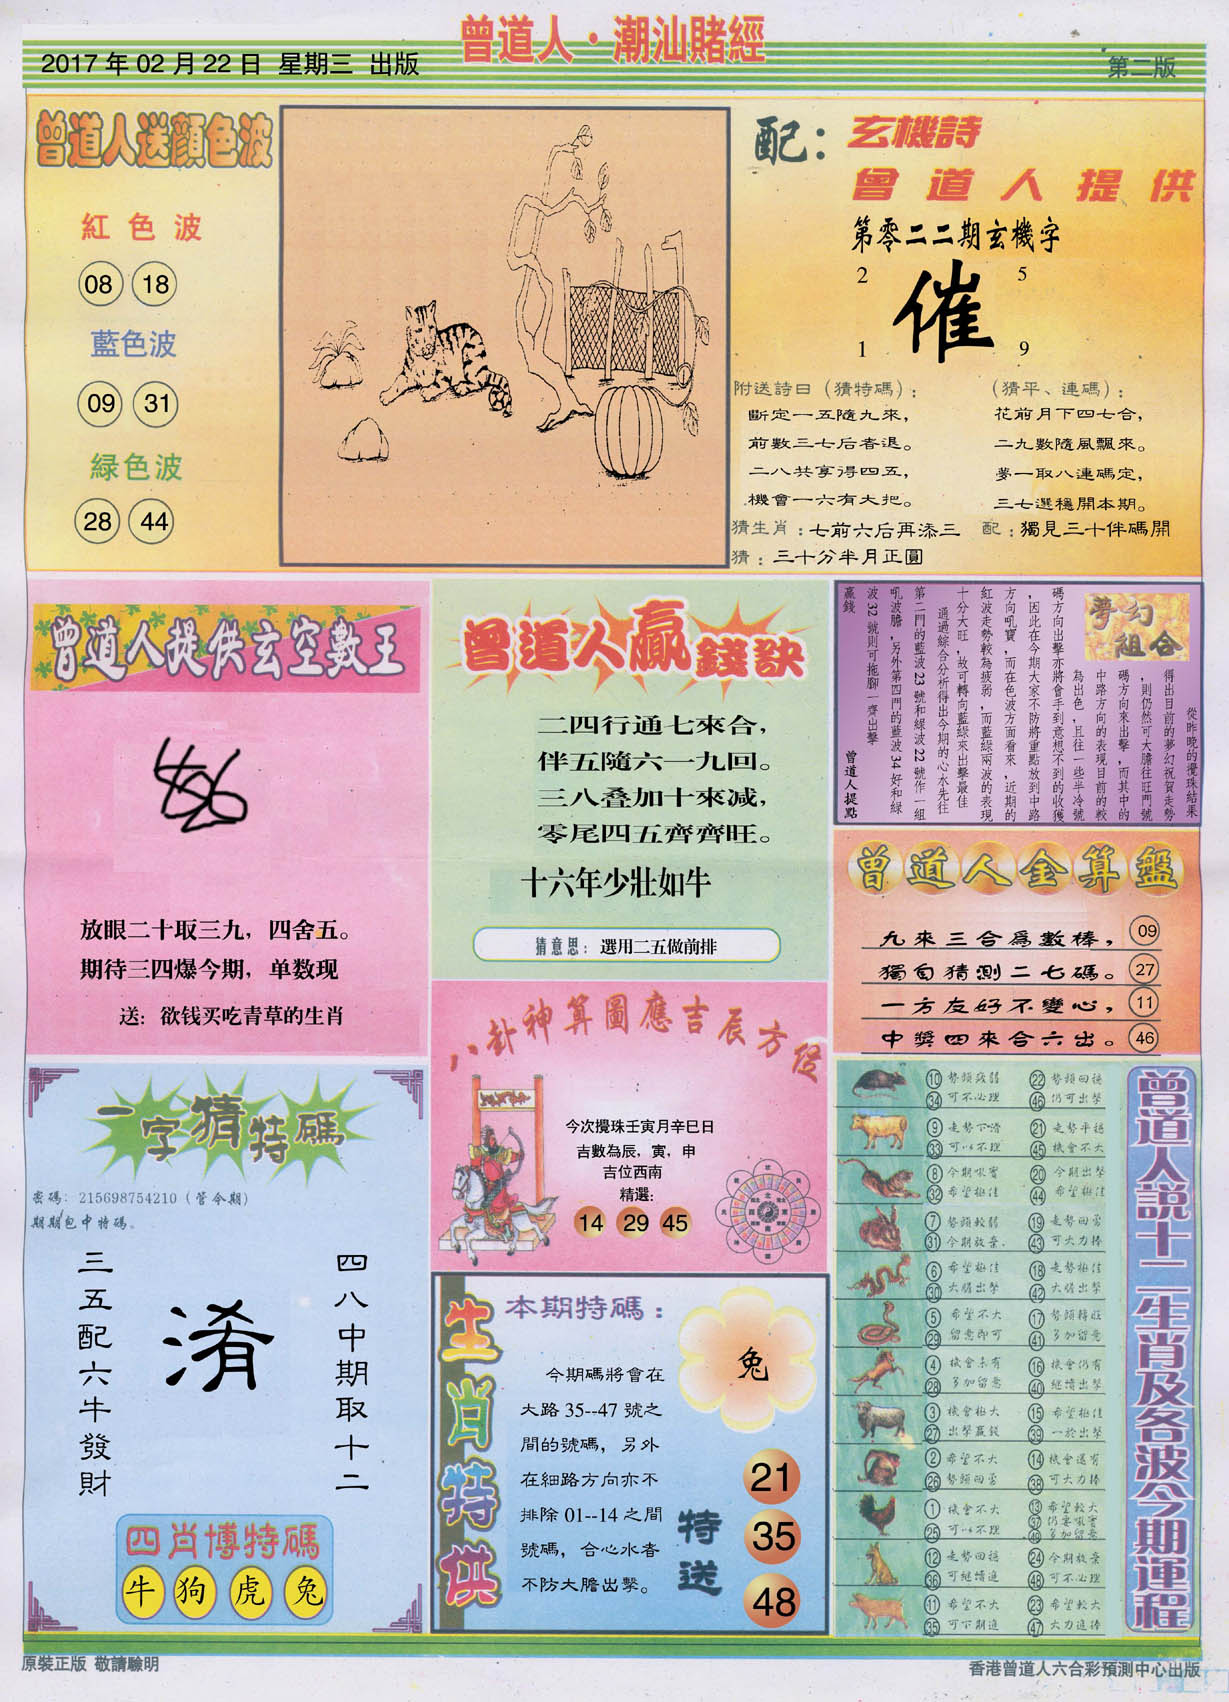 曾道人·潮汕賭經
2017 年 02 月 22 日 星期三 出版
第二版
曾道人送顏色波
紅色波
08 18
藍色波
09 31
緑色波
28 44
配：玄機詩
曾道人提供
第零二二期玄機字
2 5
催
1 9
附送詩曰（猜特碼）：
斷定一五隨九來，
前數三七后者退。
二八共享得四五，
機會一六有大把。
（猜平、連碼）：
花前月下四七合，
二九數隨風飄來。
夢一取八連碼定，
三七選穩開本期。
猜生肖：七前六后再添三
配：獨見三十伴碼開
猜：三十分半月正圓
曾道人提供玄空數王
放眼二十取三九，四舍五。
期待三四爆今期，单数现
送：欲钱买吃青草的生肖
曾道人贏錢訣
二四行通七來合，
伴五隨六一九回。
三八叠加十來減，
零尾四五齊齊旺。
十六年少壯如牛
猜意思：選用二五做前排
夢幻組合
從昨晚的攪珠結果
得出目前的夢幻祝賀走勢
，則仍然可大膽往旺門號
碼方向來出擊，而其中的
中路方向的表現目前的較
為出色，且往一些半冷號
碼方向出擊亦將會手到意想不到的收獲
，因此在今期大家不防將重點放到中路
方向吼寶，而在色波方面看來，近期的
紅波走勢較為疲弱，而藍綠兩波的表現
十分大旺，故可轉向藍綠來出擊最佳
通過綜合分析得出今期的心水先往
第二門的藍波 23 號和綠波 22 號作一組
吼波膽，另外第四門的藍波 34 好和綠
波 32 號則可拖腳一齊出擊
贏錢
曾道人提點
曾道人金算盤
九來三合爲數棒， 09
獨自猜測二七碼。 27
一方友好不變心， 11
中獎四來合六出。 46
八卦神算圖應吉辰方位
今次攪珠壬寅月辛巳日
吉數為辰，寅，申
吉位西南
精選：
14 29 45
一字猜特碼
密碼：215698754210（管令期）
期期包中特碼。
四八中期取十二
淆
三五配六牛發財
四肖博特碼
牛 狗 虎 兔
生肖特供
本期特碼：
兔
今期碼將會在
大路 35--47 號之
間的號碼，另外
在細路方向亦不
排除 01--14 之間
號碼，合心水者
不防大膽出擊。
特送
21
35
48
曾道人説十二生肖及各波今期運程
10 勢頭疲弱 22 勢頭回穩
34 可不必理 46 仍可出擊
9 走勢下滑 21 走勢平穩
33 可以不理 45 機會不大
8 今期吼實 20 今期出擊
32 希望極佳 44 希望極佳
7 勢頭較弱 19 走勢回勇
31 今期放棄. 43 可大力棒
6 希望極佳 18 走勢極佳
30 大膽出擊 42 大膽出擊
5 希望不大 17 勢頭轉旺
29 留意即可 41 多加留意
4 機會未有 16 機會仍有
28 多加留意 40 繼續出擊
3 機會極大 15 希望極佳
27 出擊贏錢 39 一於出擊
2 希望不大 14 機會還有
26 勢頭回勇 38 可大力棒
1 機會不大 13 希望較大
25 可以不理 37 仍要吼實
49 多加留意
12 走勢回穩 24 今期放棄
36 可繼續追 48 可不必理
11 希望不大 23 希望較大
35 可下期追 47 大力追棒
原裝正版 敬請驗明
香港曾道人六合彩預測中心出版